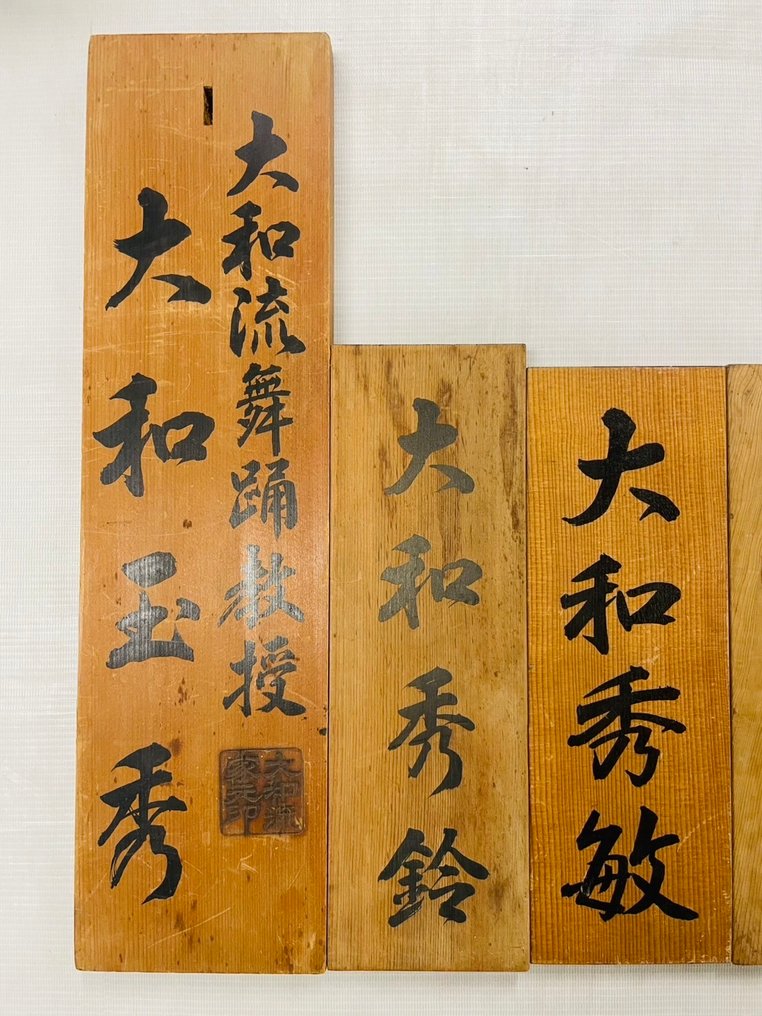 大和流舞踊教授
大和流
家元印
大和玉秀
大和秀鈴
大和秀敏